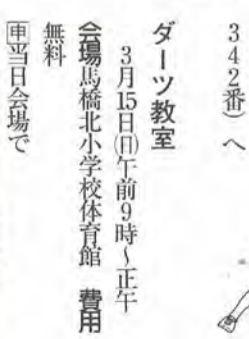 342番）へ
ダーツ教室
3月15日㈰午前9時〜正午
会場馬橋北小学校体育館　費用
無料
申当日会場で